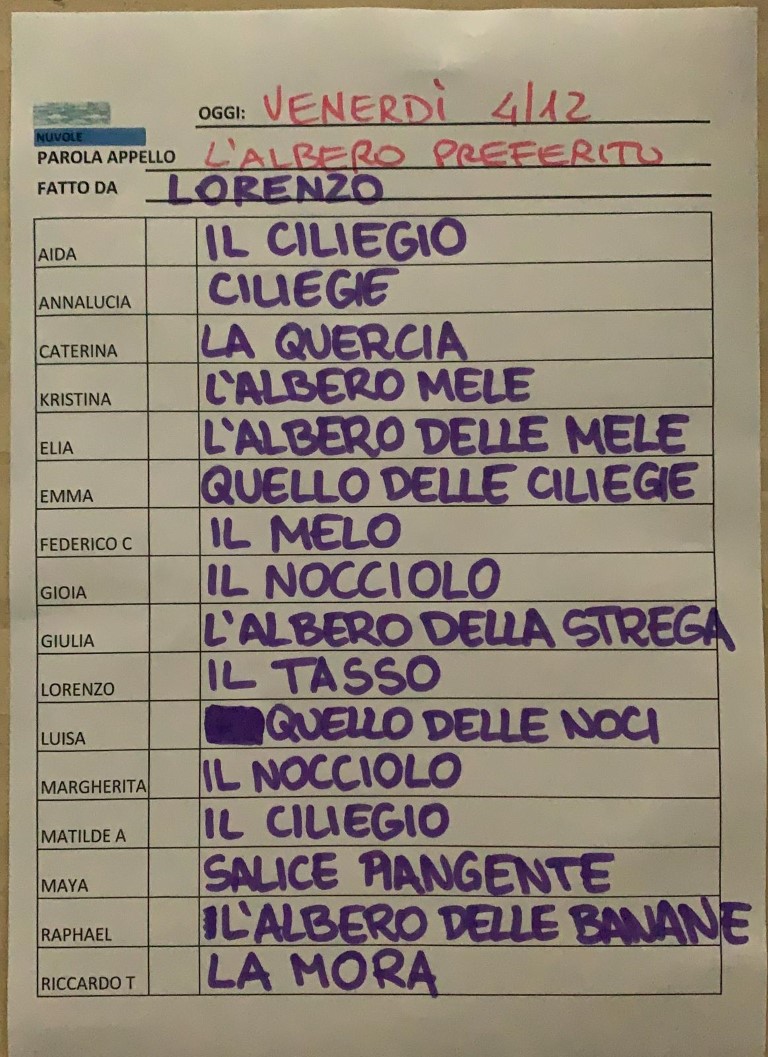 OGGI: VENERDÌ 4/12
NUVOLE
PAROLA APPELLO L'ALBERO PREFERITO
FATTO DA LORENZO
AIDA IL CILIEGIO
ANNALUCIA CILIEGIE
CATERINA LA QUERCIA
KRISTINA L'ALBERO MELE
ELIA L'ALBERO DELLE MELE
EMMA QUELLO DELLE CILIEGIE
FEDERICO C IL MELO
GIOIA IL NOCCIOLO
GIULIA L'ALBERO DELLA STREGA
LORENZO IL TASSO
LUISA QUELLO DELLE NOCI
MARGHERITA IL NOCCIOLO
MATILDE A IL CILIEGIO
MAYA SALICE PIANGENTE
RAPHAEL L'ALBERO DELLE BANANE
RICCARDO T LA MORA